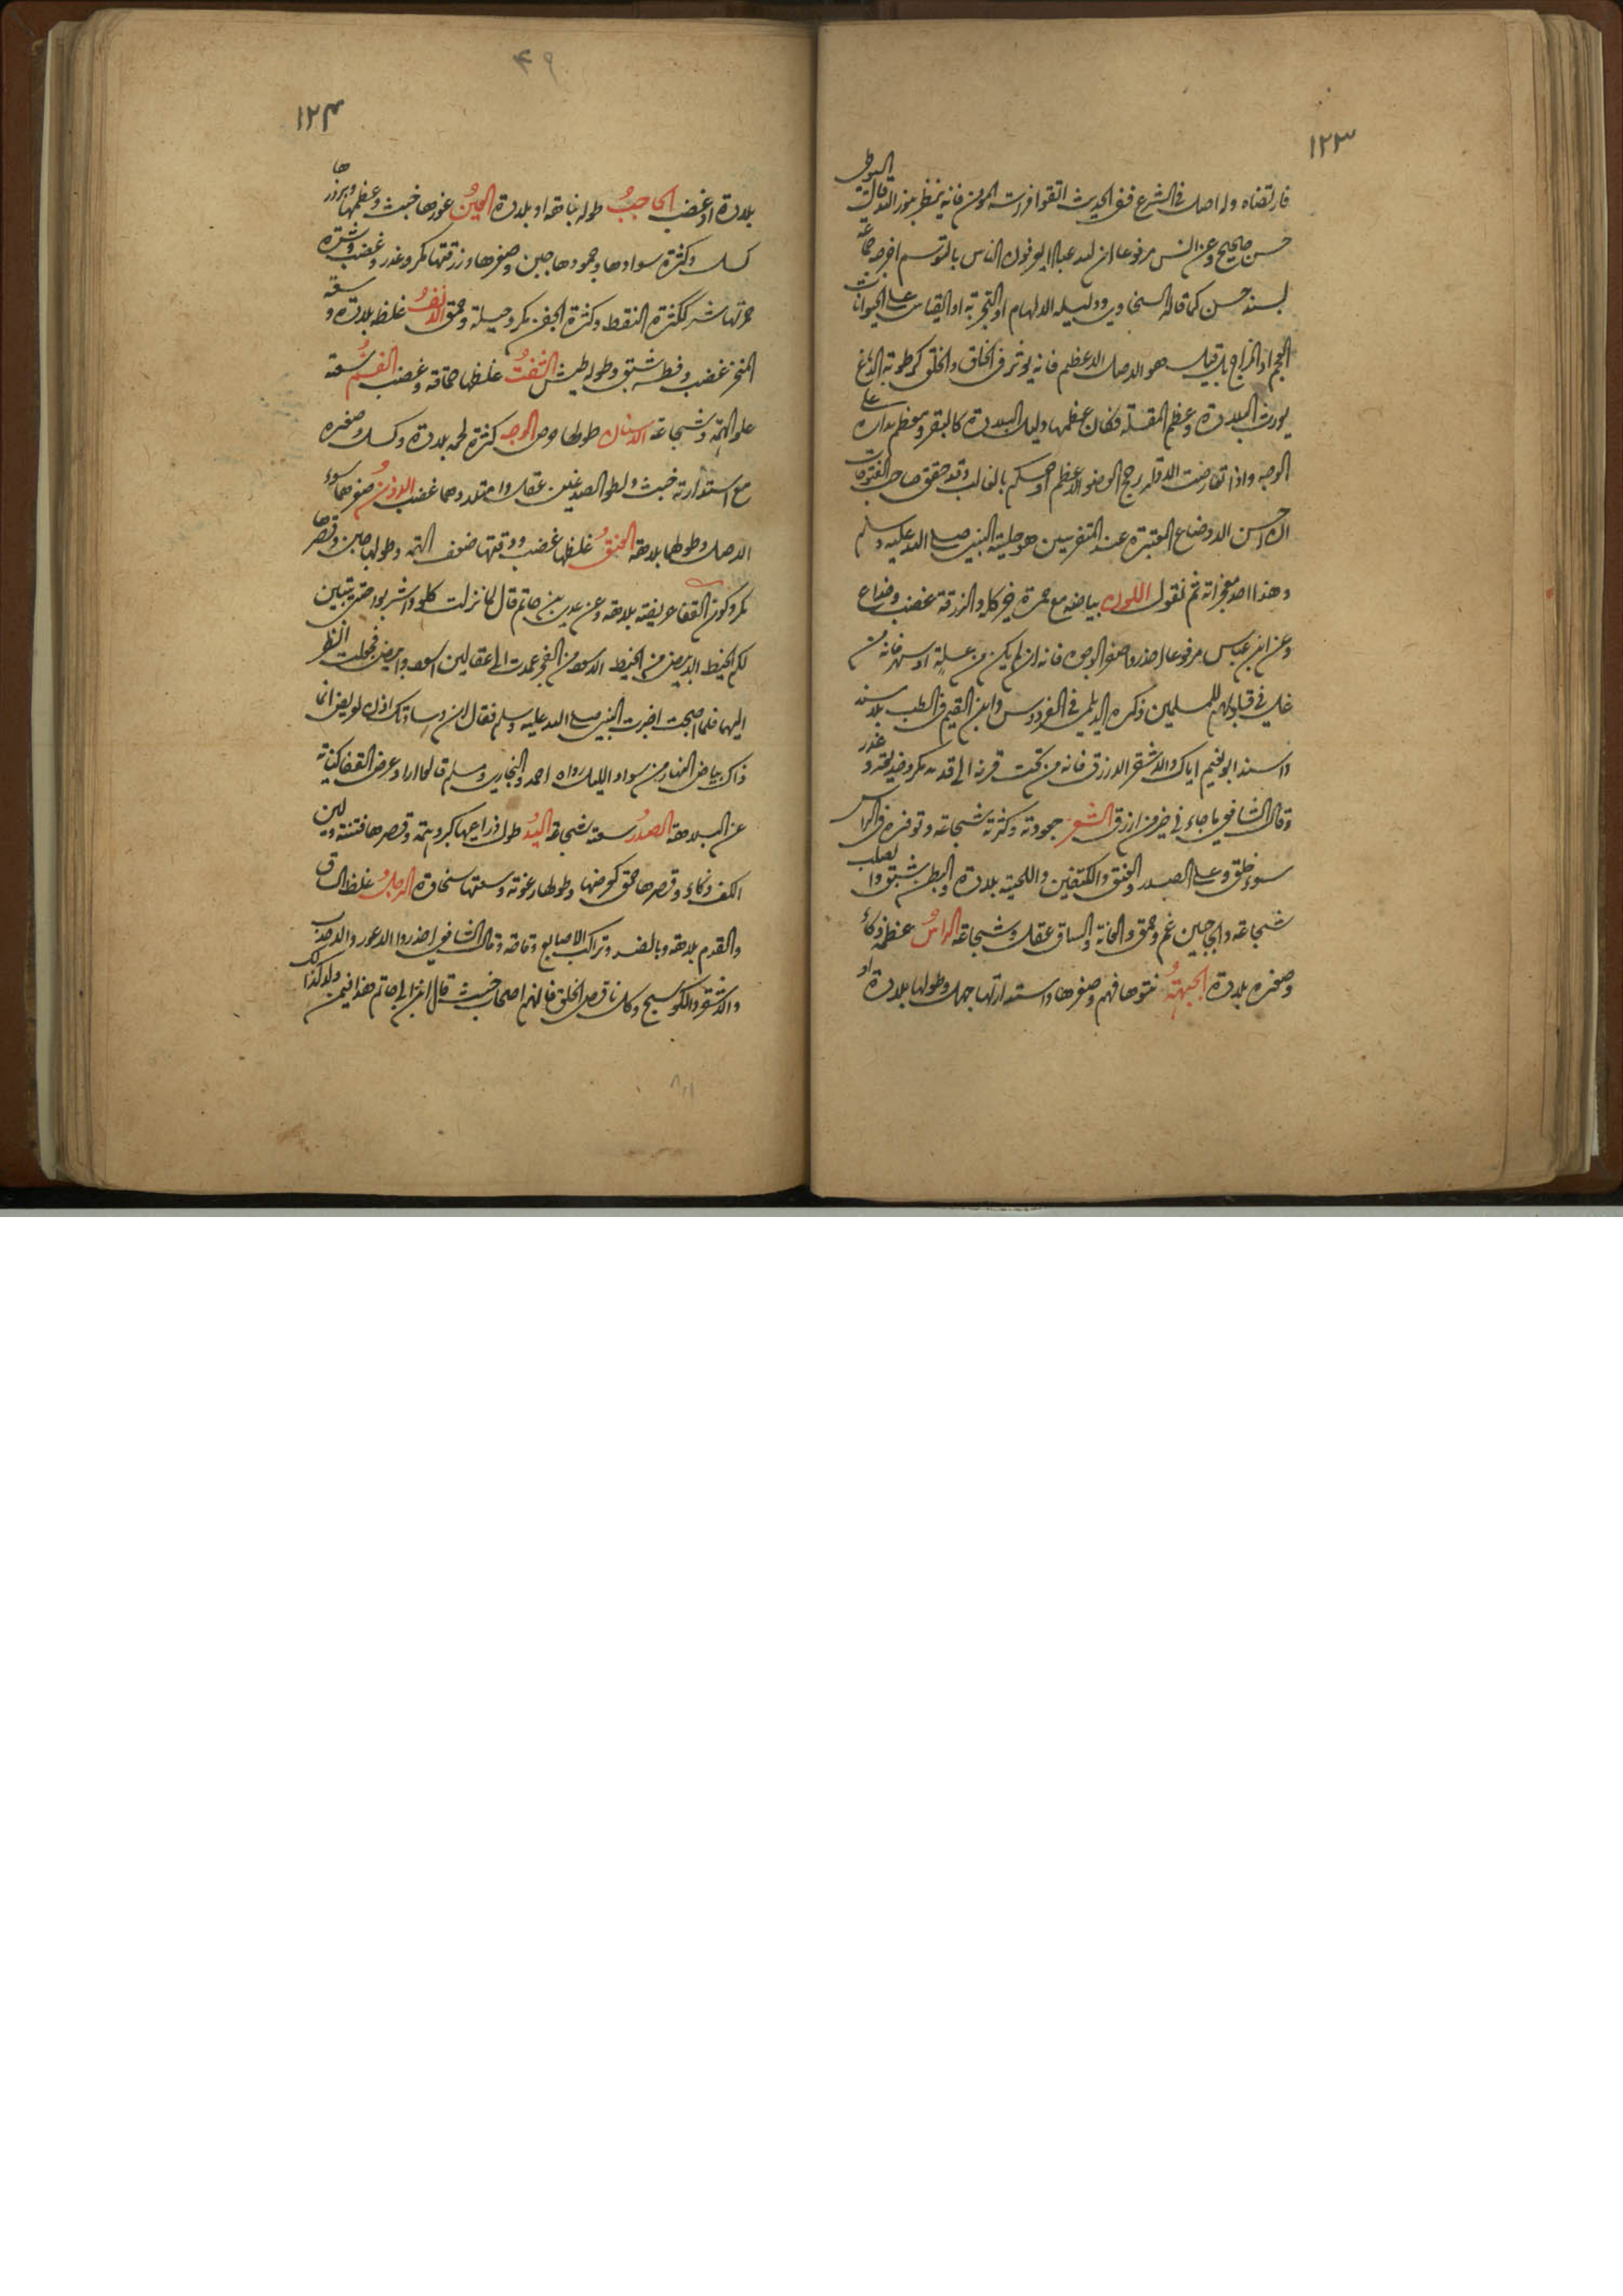 ١٢٣
فارتضاه وله اصل فى الشرع ففى الحديث اتقوا فراسة المؤمن فانه ينظر بنور الله قال السيوطى
حسن صحيح وعن انس مرفوعا ان لله عبادا يعرفون الناس بالتوسم اخرجه جماعة
بسند حسن كما قاله السخاوى ودليله الالهام او التجربة او القياس على الحيوانات
العجم او المزاج بل قيل هو الاصل الاعظم فانه يؤثر فى الخلق والخلق كرطوبة الدماغ
يورث البلادة وعظم المقلة فكان عظمها دليل البلادة كالبقر ومعظم مداره على
الوجه واذا تعارضت الادلة رجح العضو الاعظم او حكم بالغالب وقد حقق صاحب الفتوحات
ان احسن الاوضاع المعتبرة عند المتفرسين هو حلية النبى صلى الله عليه وسلم
وهذا احد معجزاته ثم نقول اللون بياضه مع حمرة خير كله والزرقة غضب وخداع
وعن ابن عباس مرفوعا احذروا صفر الوجوه فانه ان لم يكن من علة او سهر فانه من
غل فى قلوبهم للمسلمين ذكره الديلمى فى الفردوس وابن القيم فى الطب بلا سند
واسند ابو نعيم اياك والاشقر الازرق فانه من تحت قرنه الى قدمه مكر وخديعة وغدر
وقال الشافعى ما جاءنى خير من ازرق الشعر جعودته وكثرته شجاعة وتوفره فى الراس
سوء خلق وعلى الصدر والعنق والكتفين واللحية بلادة والبطن شبق والصلب
شجاعة والحاجبين غم وحمق والعانة والساق عقل وشجاعة الراس عظمه ذكاء
وصغره بلادة الجبهة نتوها فهم وصغرها واستدارتها جهل وطولها بلادة او
٤٩
١٢٤
بلادة او غضب الحاجب طوله نباهة او بلادة العين غورها خبث وعظمها وبروزها
كسل وكثرة سوادها وجمودها جبن وصغرها وزرقتها مكر وغدر وغضب وشره
حمرتها شر ككثرة النقط وكثرة الجفن مكر وحيلة وحمق الانف غلظه بلادة وسعة
المنخر غضب وفطسه شبق وطوله طيش الشفة غلظها حماقة وغضب الفم سعته
علو الهمة وشجاعة الاسنان طولها حرص الوجه كثرة لحمه بلادة وكسل وصغره
مع استدارته خبث ولطو الصدغين عقل وامتلاءهما غضب الاذن صغرهما سوء
الاصل وطولها بلاهة العنق غلظها غضب ودقتها ضعف الهمة وطولها جبن وقصرها
مكر وكون القفا عريضة بلاهة وعن عدى بن حاتم قال لما نزلت كلوا واشربوا حتى يتبين
لكم الخيط الابيض من الخيط الاسود من الفجر عمدت الى عقالين اسود وابيض فجعلت انظر
اليهما فلما اصبحت اخبرت النبى صلى الله عليه وسلم فقال ان وسادتك اذن لعريض انما
ذاك بياض النهار من سواد الليل رواه احمد والبخارى ومسلم قالوا اراد عرض القفا كناية
عن البلاهة الصدر سعته شجاعة اليد طول ذراعيها كبر وهمة وقصرها فتنة ولين
الكف ذكاء وقصرها حمق كعرضها وطولها رعونة وسعتها سخاوة الرجل غلظ الساق
والقدم بلاهة وبالضد وتراكب الاصابع وقاحة وقال الشافعى احذروا الاعور والاحدب
والاشقر والكوسج وكل ناقص الخلق فانهم اصحاب خبث قال ابن ابى حاتم هذا فيمن ولد كذلك